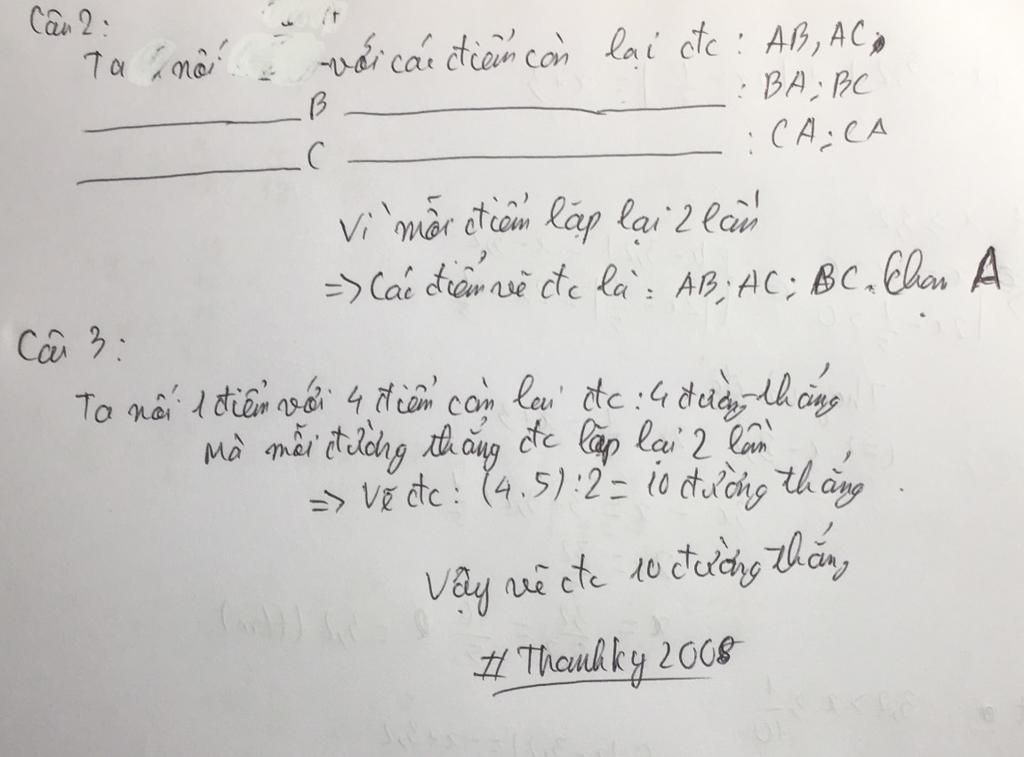 Câu 2:
Ta nối với các điểm còn lại đc : AB, AC.
B : BA; BC
C : CA; CA
Vì mỗi điểm lặp lại 2 lần
=> Các điểm vẽ đc là : AB; AC; BC. Chọn A
Câu 3:
Ta nối 1 điểm với 4 điểm còn lại đc : 4 đường thẳng
Mà mỗi đường thẳng đc lặp lại 2 lần
=> Vẽ đc : (4.5) : 2 = 10 đường thẳng.
Vậy vẽ đc 10 đường thẳng
# Thanhky 2008